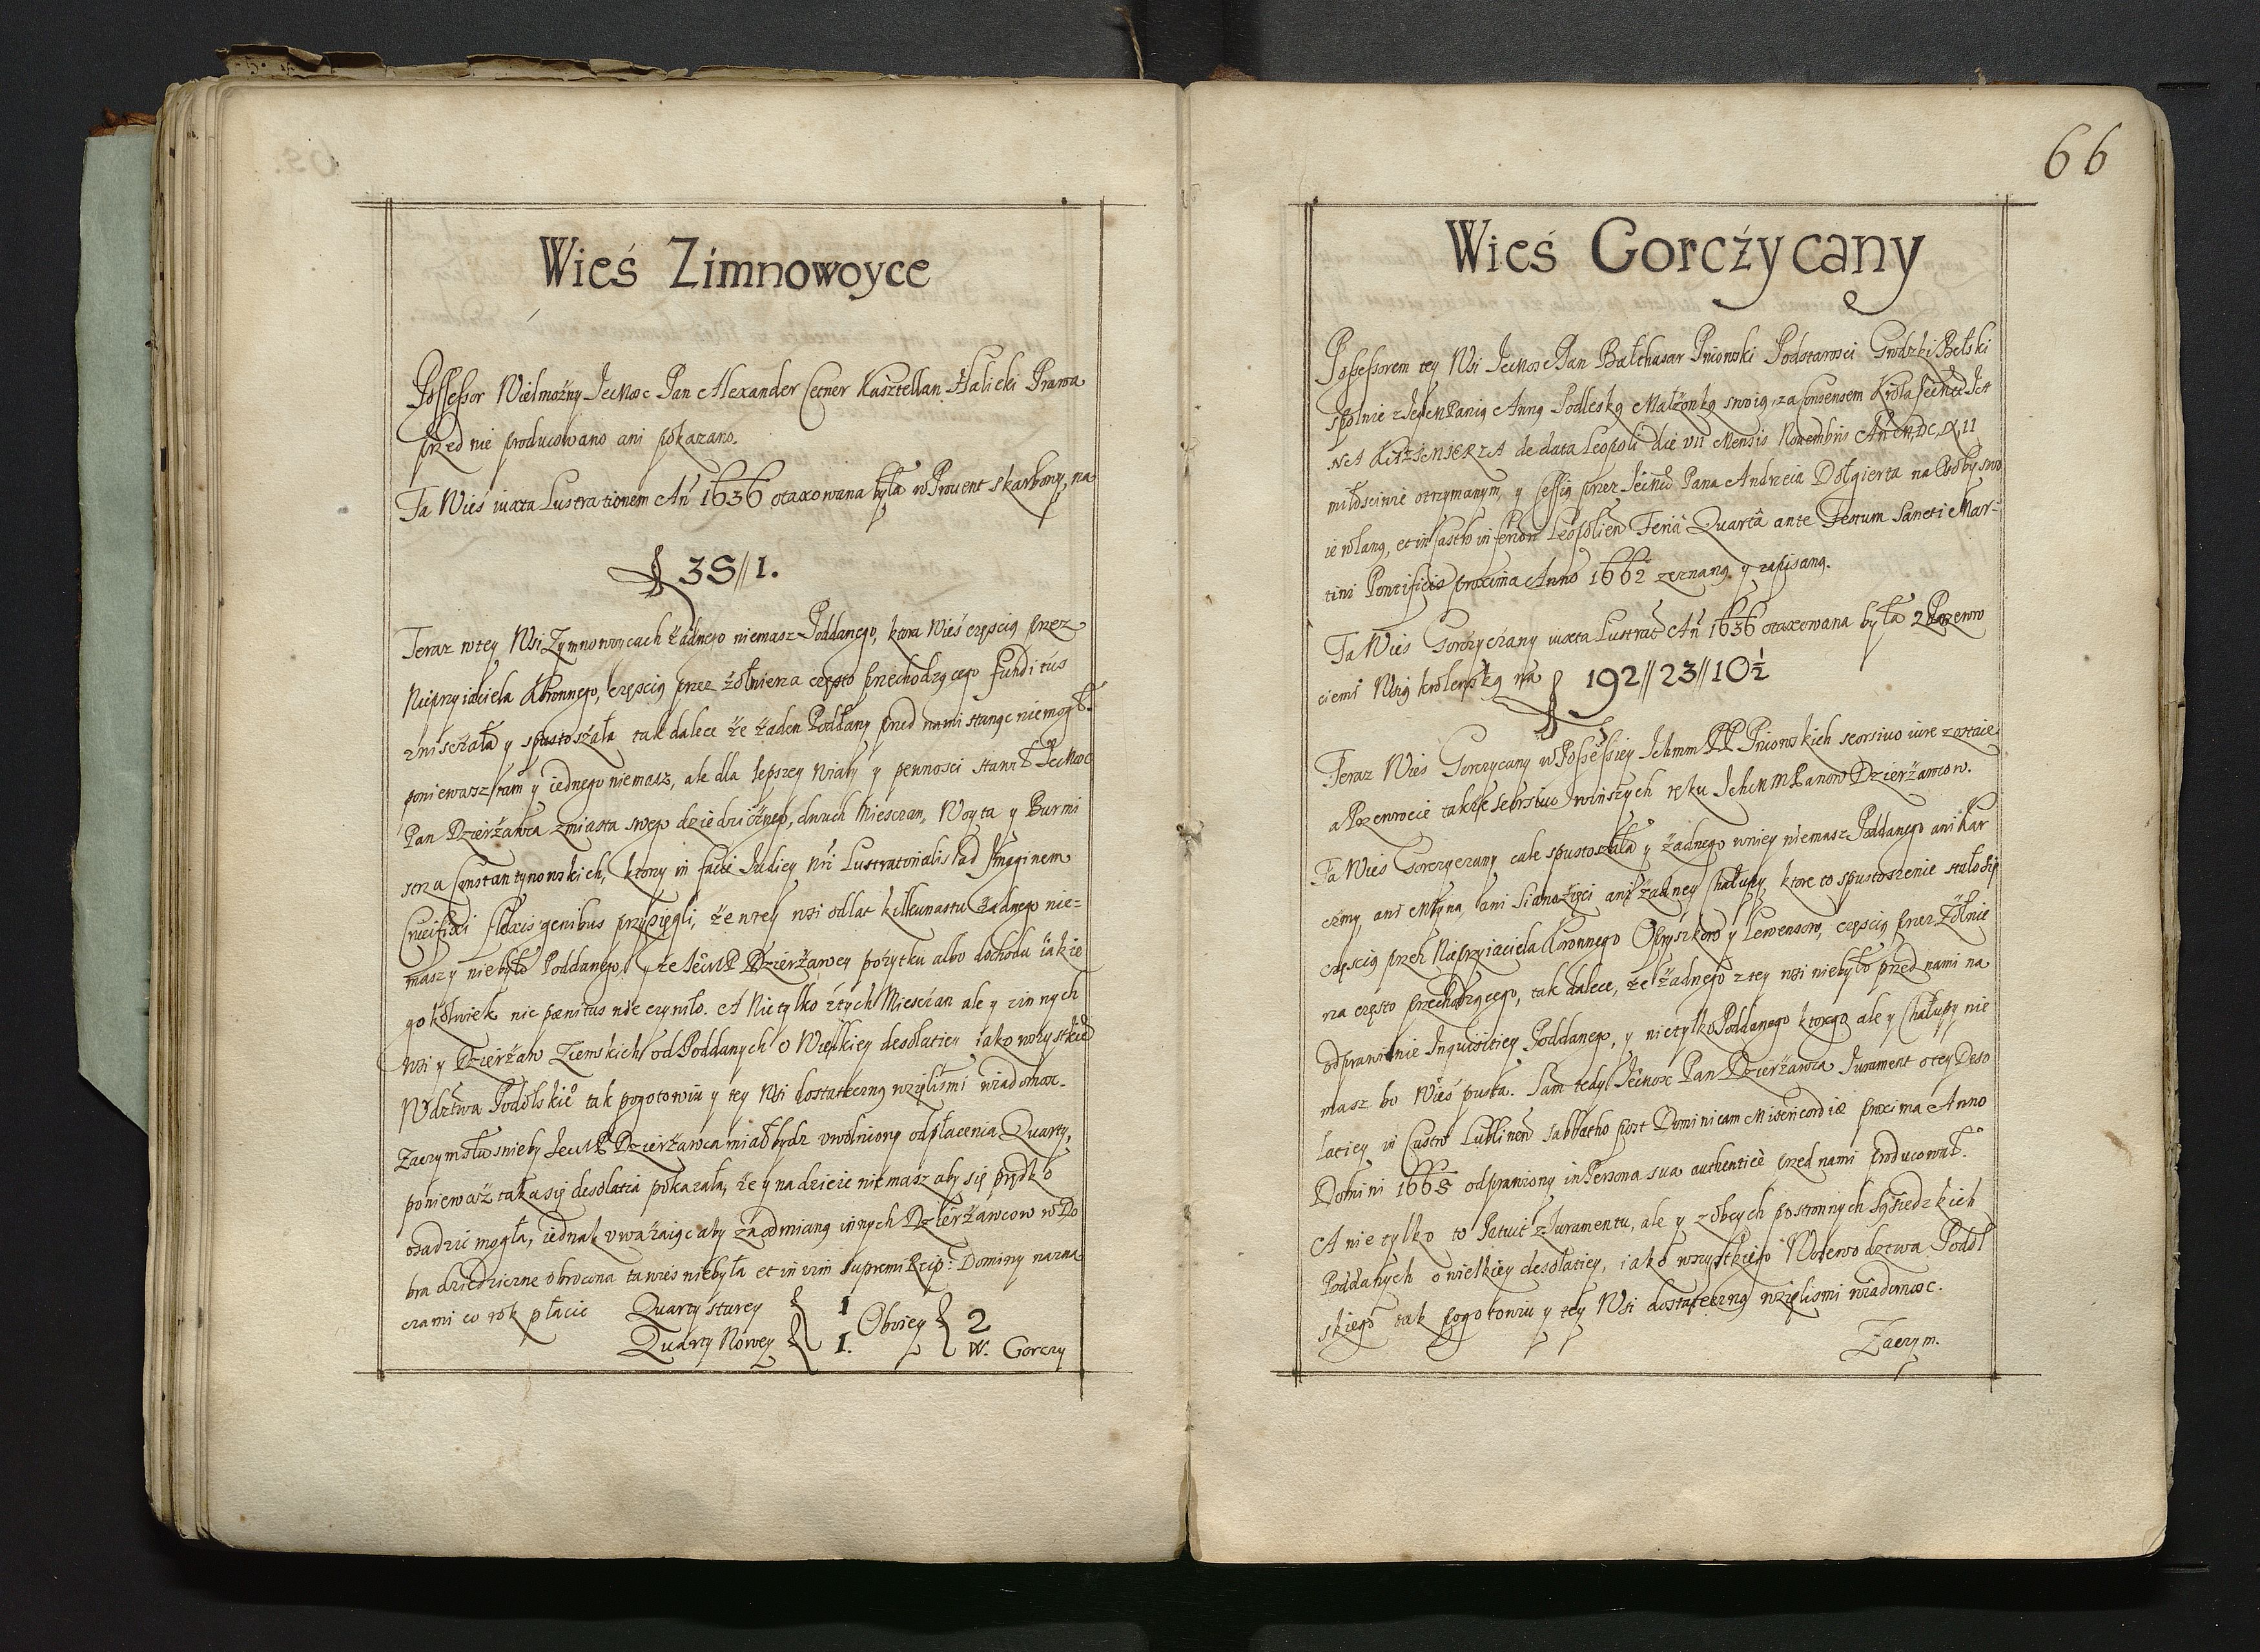 Wieś Zimnowoyce
Possessor Wielmożny JeoMosc Pan Alexander Cetner Kasztellan Halicki Prawa
przed nie producowano ani pokazano.
Ta Wieś iuxta Lustrationem Añ 1636 otaxowana była w Prouent skarbowy, na
Teraz wtey Wsi Zymnowoycach żadnego niemasz Poddanego, ktora Wieś częscią przez
Nieprzyiaciela Koronnego, częscią przez żołnierza często przechodzącego funditus
zniszczała y spustoszała tak dalece że żaden Poddany przed nami stanąc niemogł.
poniewasz tam y iednego niemasz, ale dla lepszey wiary y pewnosci stawił JeoMosc
Pan Dzierżawca zmiasta swego dziedzicznego, dwuch Miesczan, Woyta y Burmi
strza Constantynowskich, ktorzy in facie Judicy Nri Lustratorialis ad Imaginem
Crucifixi flexis genibus przysięgli, że wtey wsi odlat kilkunastu żadnego nie=
masz y niebyło Poddanego, y że JeoMP Dzierżawcy pożytku albo dochodu iakie
gokolwiek nic pænitus nie czyniło. A Nietylko ztych Miesczan ale y zinnych
wsi y Dzierżaw Ziemskich od Poddanych o Wielkiey desolatiey iako wszystkie
Wdztwa Podolskie tak pogotowiu y tey Wsi dostateczną wzięlismi wiadomosc.
Zaczym słusnieby JeoMP Dzierżawca miał bydz vwolniony odpłacenia Quarty,
poniewaz taka się desolatia pokazała, że y nadzieie nie masz aby się prędko
osadzic mogła, iednak vważaiąc aby za odmianą innych Dzierżawcow w Do
bra dziedziczne obrocona ta wies niebyła et in vim supremi Rcip: Dominy nazna
czami co rok płacic Quarty starey 1 Oboiey 2
Quarty Nowey 1.
W. Gorczy
66
Wieś Gorczycany
Possessorem tey Wsi JeoMosc Pan Balthasar Pniowski Podstarosci Grodzki Bełski
spolnie z JeyM Panią Anną Podleską Małżonką swoią, za Consensem Krola JeoMci JA
NA KAZIMIERZA de data Leopoli die VII Mensis Nouembris
miłosciwie otrzymanym, y Cessią przez JeoMci Pana Andrzeia Dołgierta na Osoby swo
ie wlaną, et in Castro inferiori Leopolien Feria Quarta ante Festum Sancti Mar=
tini Pontificis proxima Anno 1662 zeznaną y zapisaną.
Ta Wies Gorczyczany iuxta Lustrat Añ 1636 otaxowana była z Rozenwo
ciemi Wsią krolewską na 192//23//10½
Teraz Wies Gorczycany w Possessiey Ichmm PP Pniowskich seorsiuo iure zostaie,
a Rozenwocie także seorsiuo winszych ręku IchMM Panow Dzierżawcow.
Ta Wies Gorczyczany cale spustoszała y żadnego wniey niemasz Poddanego ani Kar
czmy, ani Młyna, ani Sianożęci ani żadney Chałupy, ktore to spustoszenie stało się
częscią przez Nieprzyiaciela Koronnego Opryszkow y Lewensow, częscią przez Żołnie
rza często przechodzącego, tak dalece, że żadnego z tey wsi niebyło przed nami na
odprawienie Inquisitiey Poddanego, y nietylko Poddanego ktorego ale y Chałupy nie
masz bo Wieś pusta. Sam tedy Jeomosc Pan Dzierżawca Jurament o tey Deso
latiey in Castro Lublinen Sabbatho post Dominicam Misericordiæ proxima Anno
Domini 1665 odprawiony in Persona sua authenticè przed nami producował.
A nie tylko to Patuit z Juramentu, ale y z obcych postronnych Sąsiedzkich
Poddanych o wielkiey desolatiey, iako wszystkiego Woiewodztwa Podol
skiego tak pogotowiu y tey Wsi dostateczną wzięlismi wiadomosc.
Zaczym.